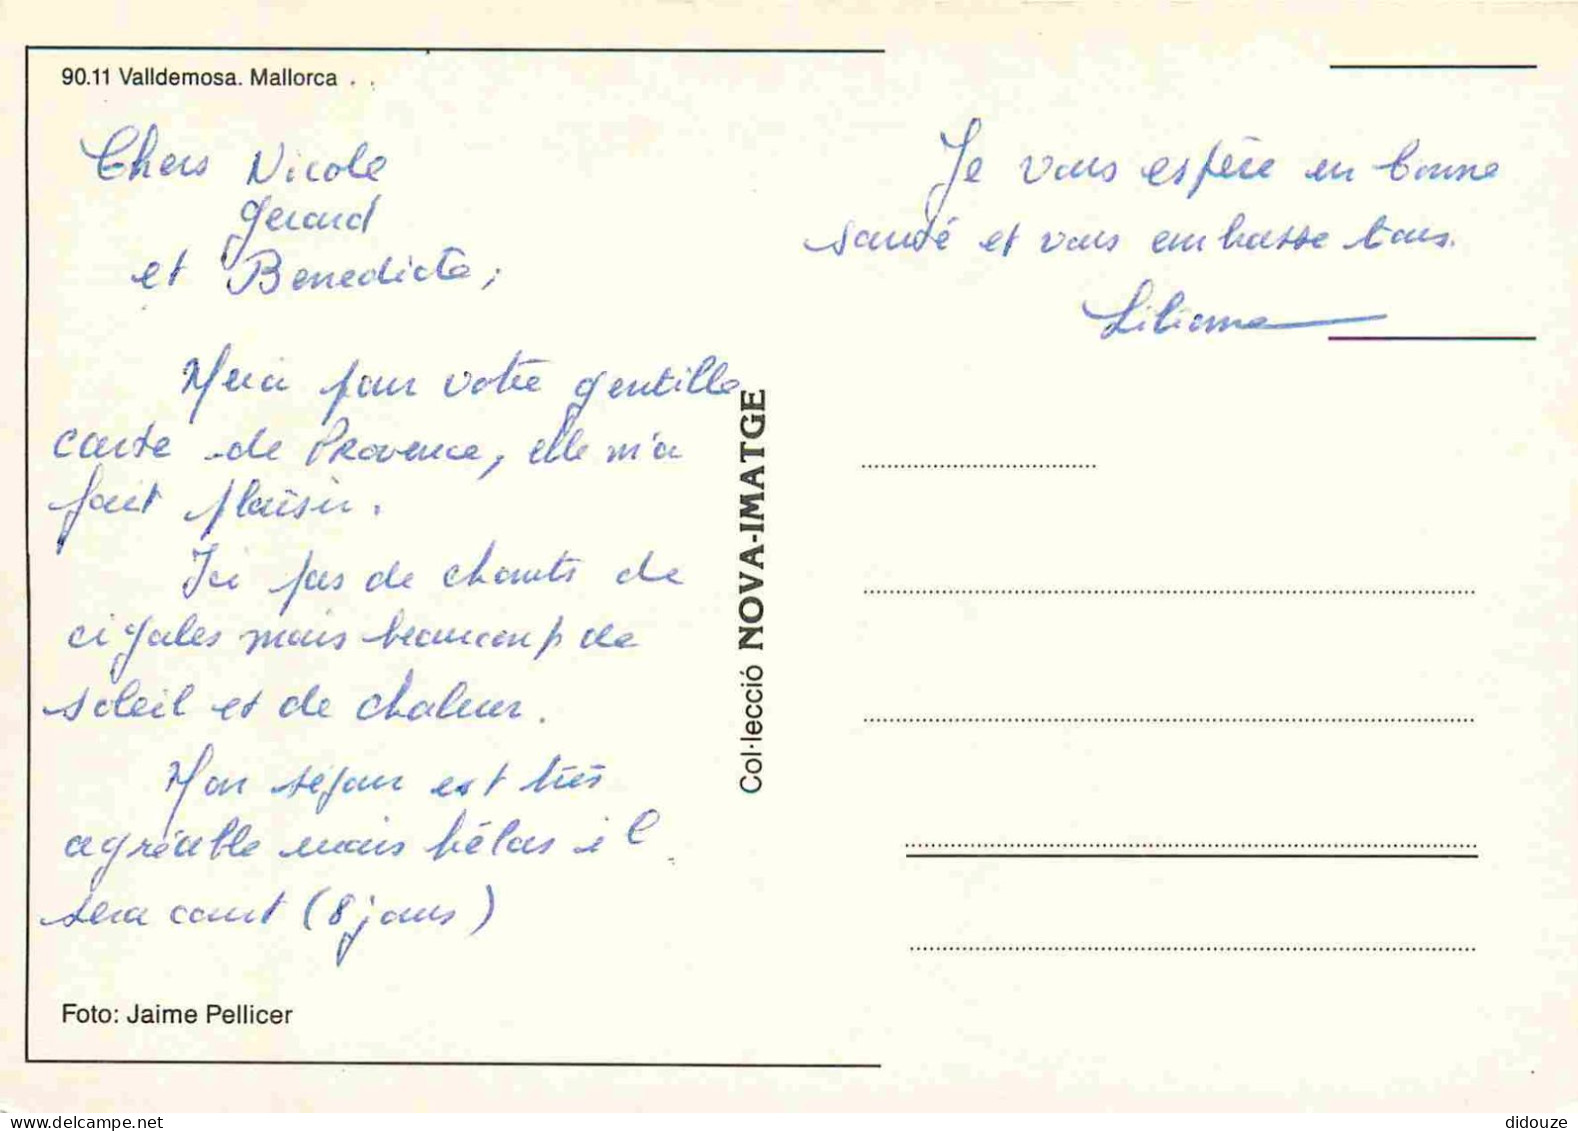 90.11 Valldemosa. Mallorca
Chers Nicole
Gerard
et Benedicte,
Merci pour votre gentille
carte de Provence, elle m'a
fait plaisir.
Ici pas de chants de
cigales mais beaucoup de
soleil et de chaleur.
Mon séjour est très
agréable mais hélas il
sera court (8 jours)
Foto: Jaime Pellicer
Col·lecció NOVA-IMATGE
Je vous espère en bonne
santé et vous embrasse tous.
Liliane
didouze